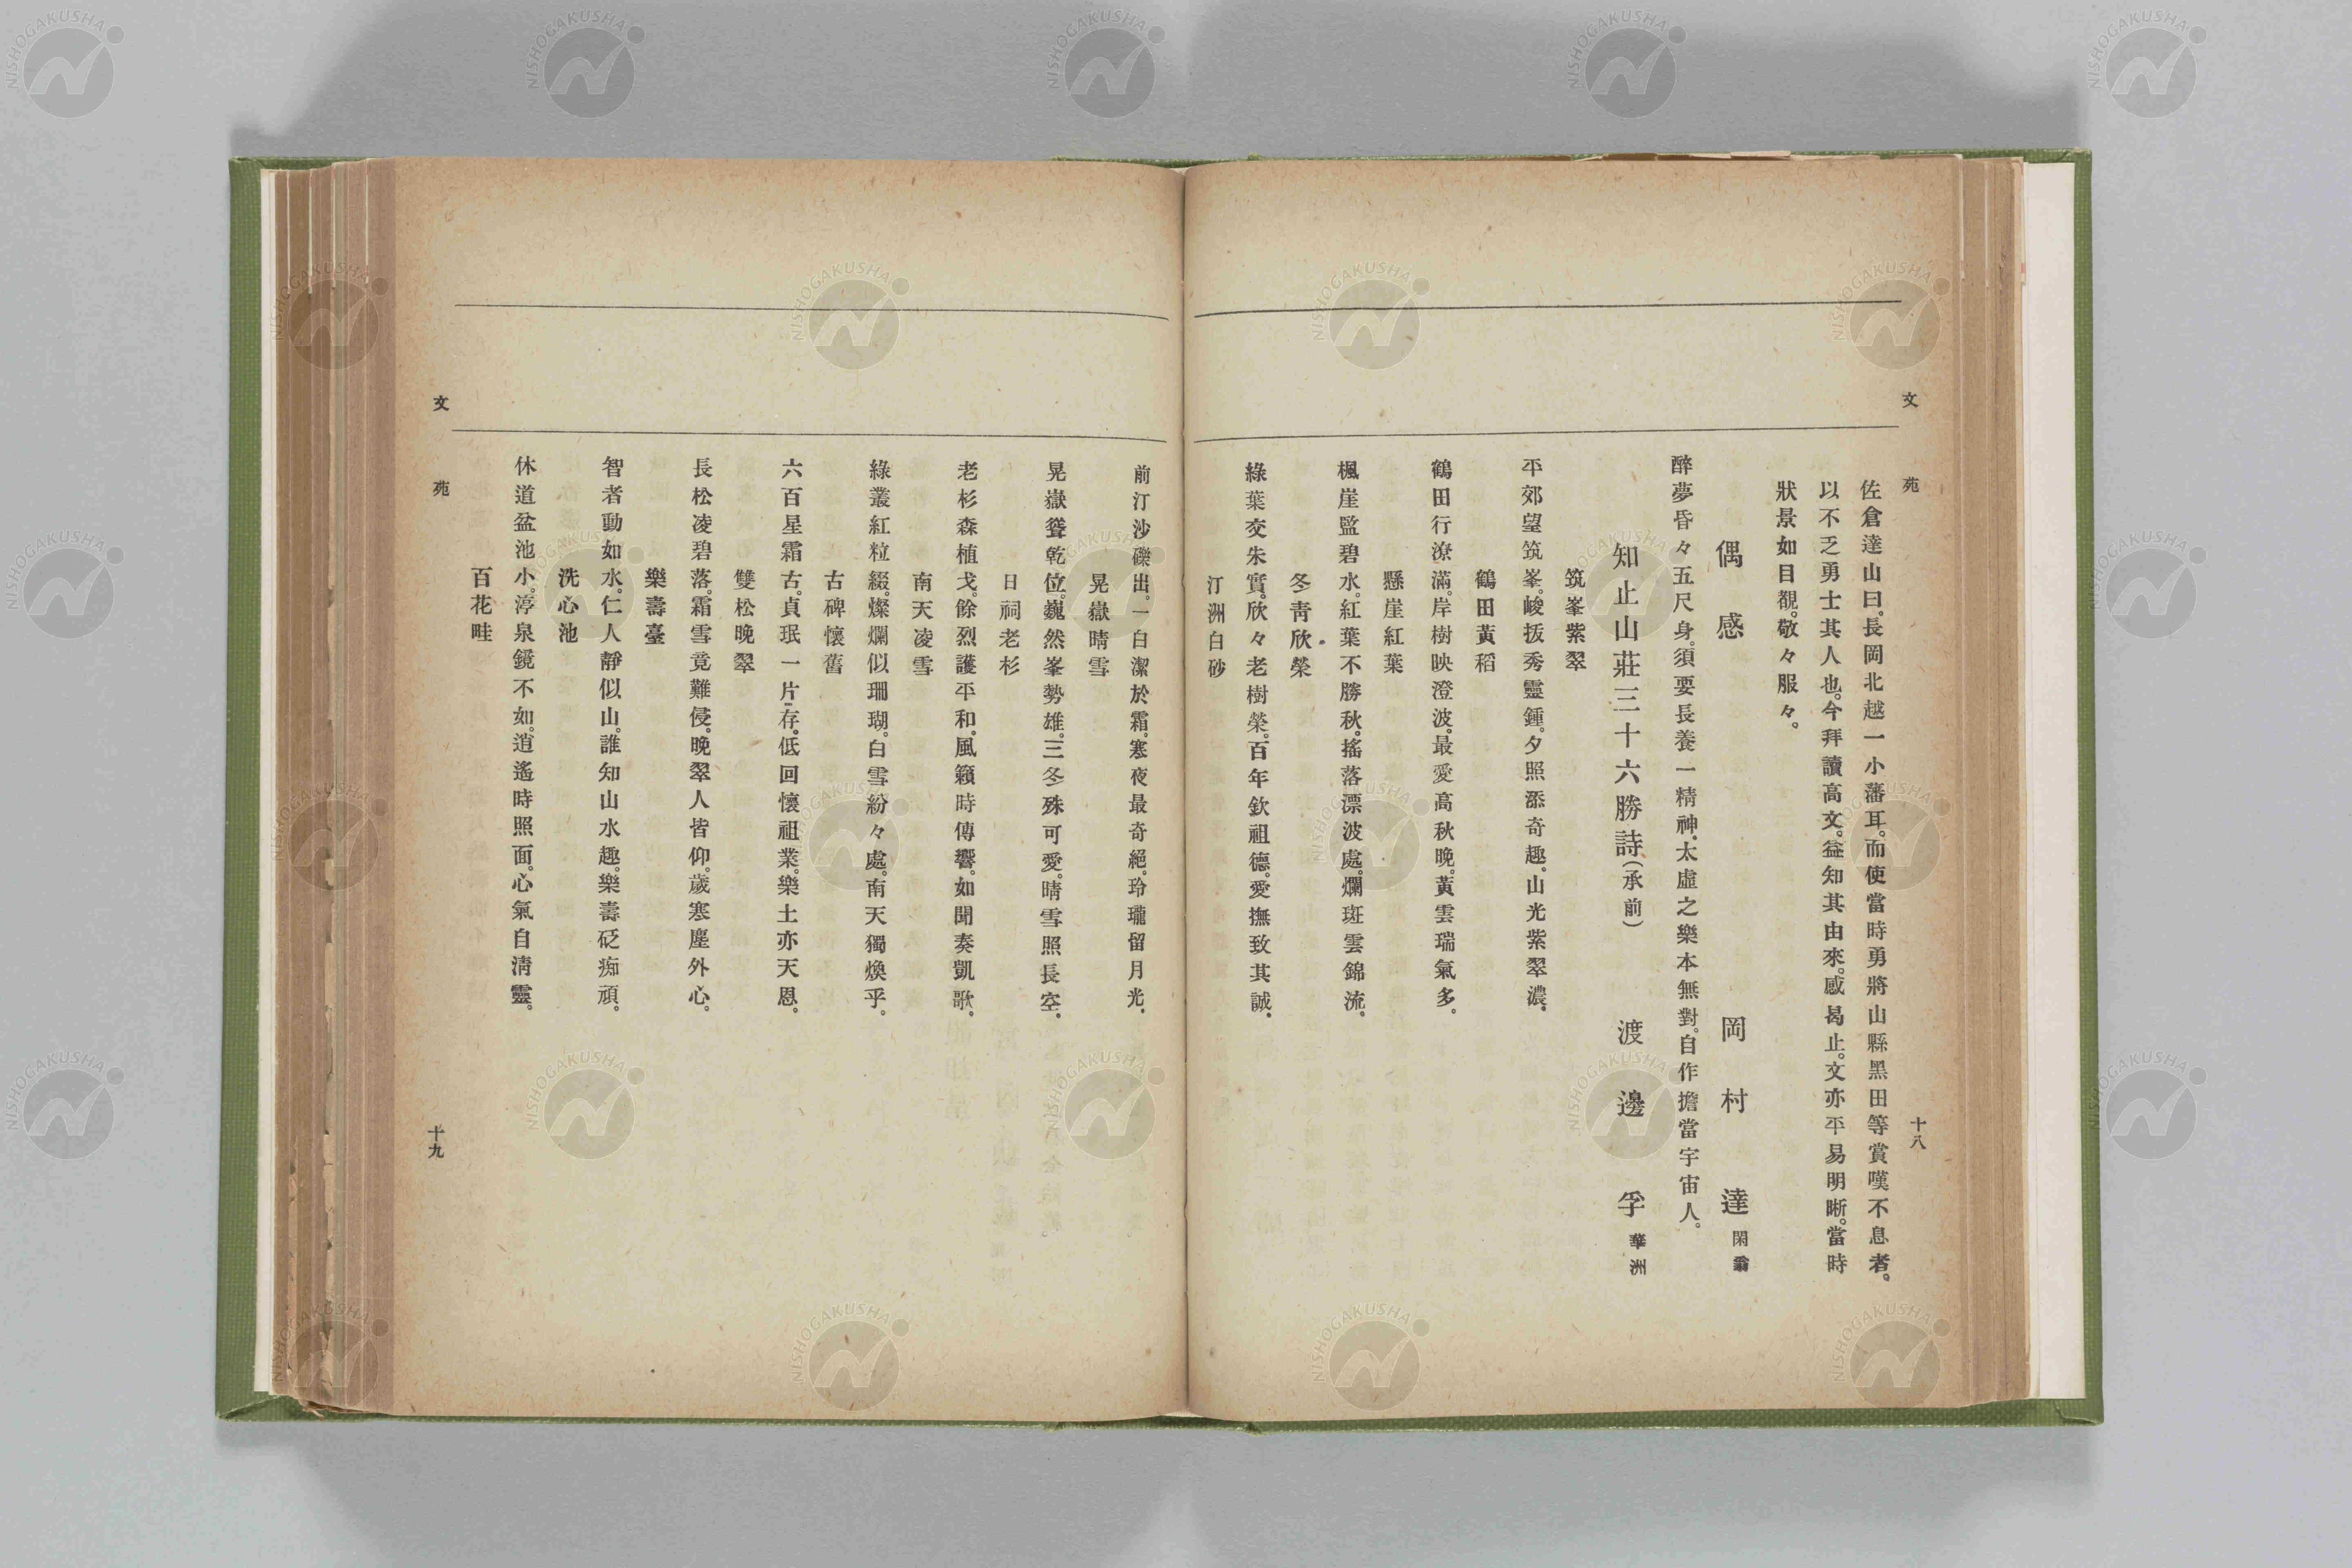 文苑
十八
佐倉達山曰。長岡北越一小藩耳。而使當時勇將山縣黑田等賞嘆不息者。
以不乏勇士其人也。今拜讀高文。益知其由來。感曷止。文亦平易明晰。當時
狀景如目覩。敬々服々。
偶感 岡村達 閑翁
醉夢昏々五尺身。須要長養一精神。太虛之樂本無對。自作擔當宇宙人。
知止山莊三十六勝詩(承前) 渡邊孚 華洲
筑峯紫翠
平郊望筑峯。峻拔秀靈鍾。夕照添奇趣。山光紫翠濃。
鶴田黃稻
鶴田行潦滿。岸樹映澄波。最愛高秋晚。黃雲瑞氣多。
懸崖紅葉
楓崖監碧水。紅葉不勝秋。搖落漂波處。爛斑雲錦流。
冬靑欣榮
綠葉交朱實。欣々老樹榮。百年欽祖德。愛撫致其誠。
汀洲白砂
前汀沙礫出。一白潔於霜。寒夜最奇絕。玲瓏留月光。
晃嶽晴雪
晃嶽聳乾位。巍然峯勢雄。三冬殊可愛。晴雪照長空。
日祠老杉
老杉森植戈。餘烈護平和。風籟時傳響。如聞奏凱歌。
南天凌雪
綠叢紅粒綴。燦爛似珊瑚。白雪紛々處。南天獨煥乎。
古碑懷舊
六百星霜古。貞珉一片存。低回懷祖業。樂土亦天恩。
雙松晚翠
長松凌碧落。霜雪竟難侵。晚翠人皆仰。歲寒塵外心。
樂壽臺
智者動如水。仁人靜似山。誰知山水趣。樂壽砭痴頑。
洗心池
休道盆池小。渟泉鏡不如。逍遙時照面。心氣自淸靈。
百花畦
文苑
十九